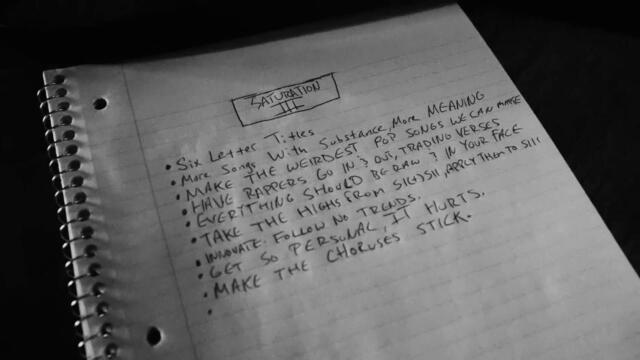 SATURATION
III
• Six Letter Titles
• More Songs With Substance, More MEANING
• MAKE THE WEIRDEST POP SONGS WE CAN MAKE
• HAVE RAPPERS GO IN & OUT, TRADING VERSES
• EVERYTHING SHOULD BE RAW & IN YOUR FACE
• TAKE THE HIGHS FROM SI&SII, APPLY THEM TO SIII
• INNOVATE. FOLLOW NO TRENDS.
• GET SO PERSONAL, IT HURTS.
• MAKE THE CHORUSES STICK.
•